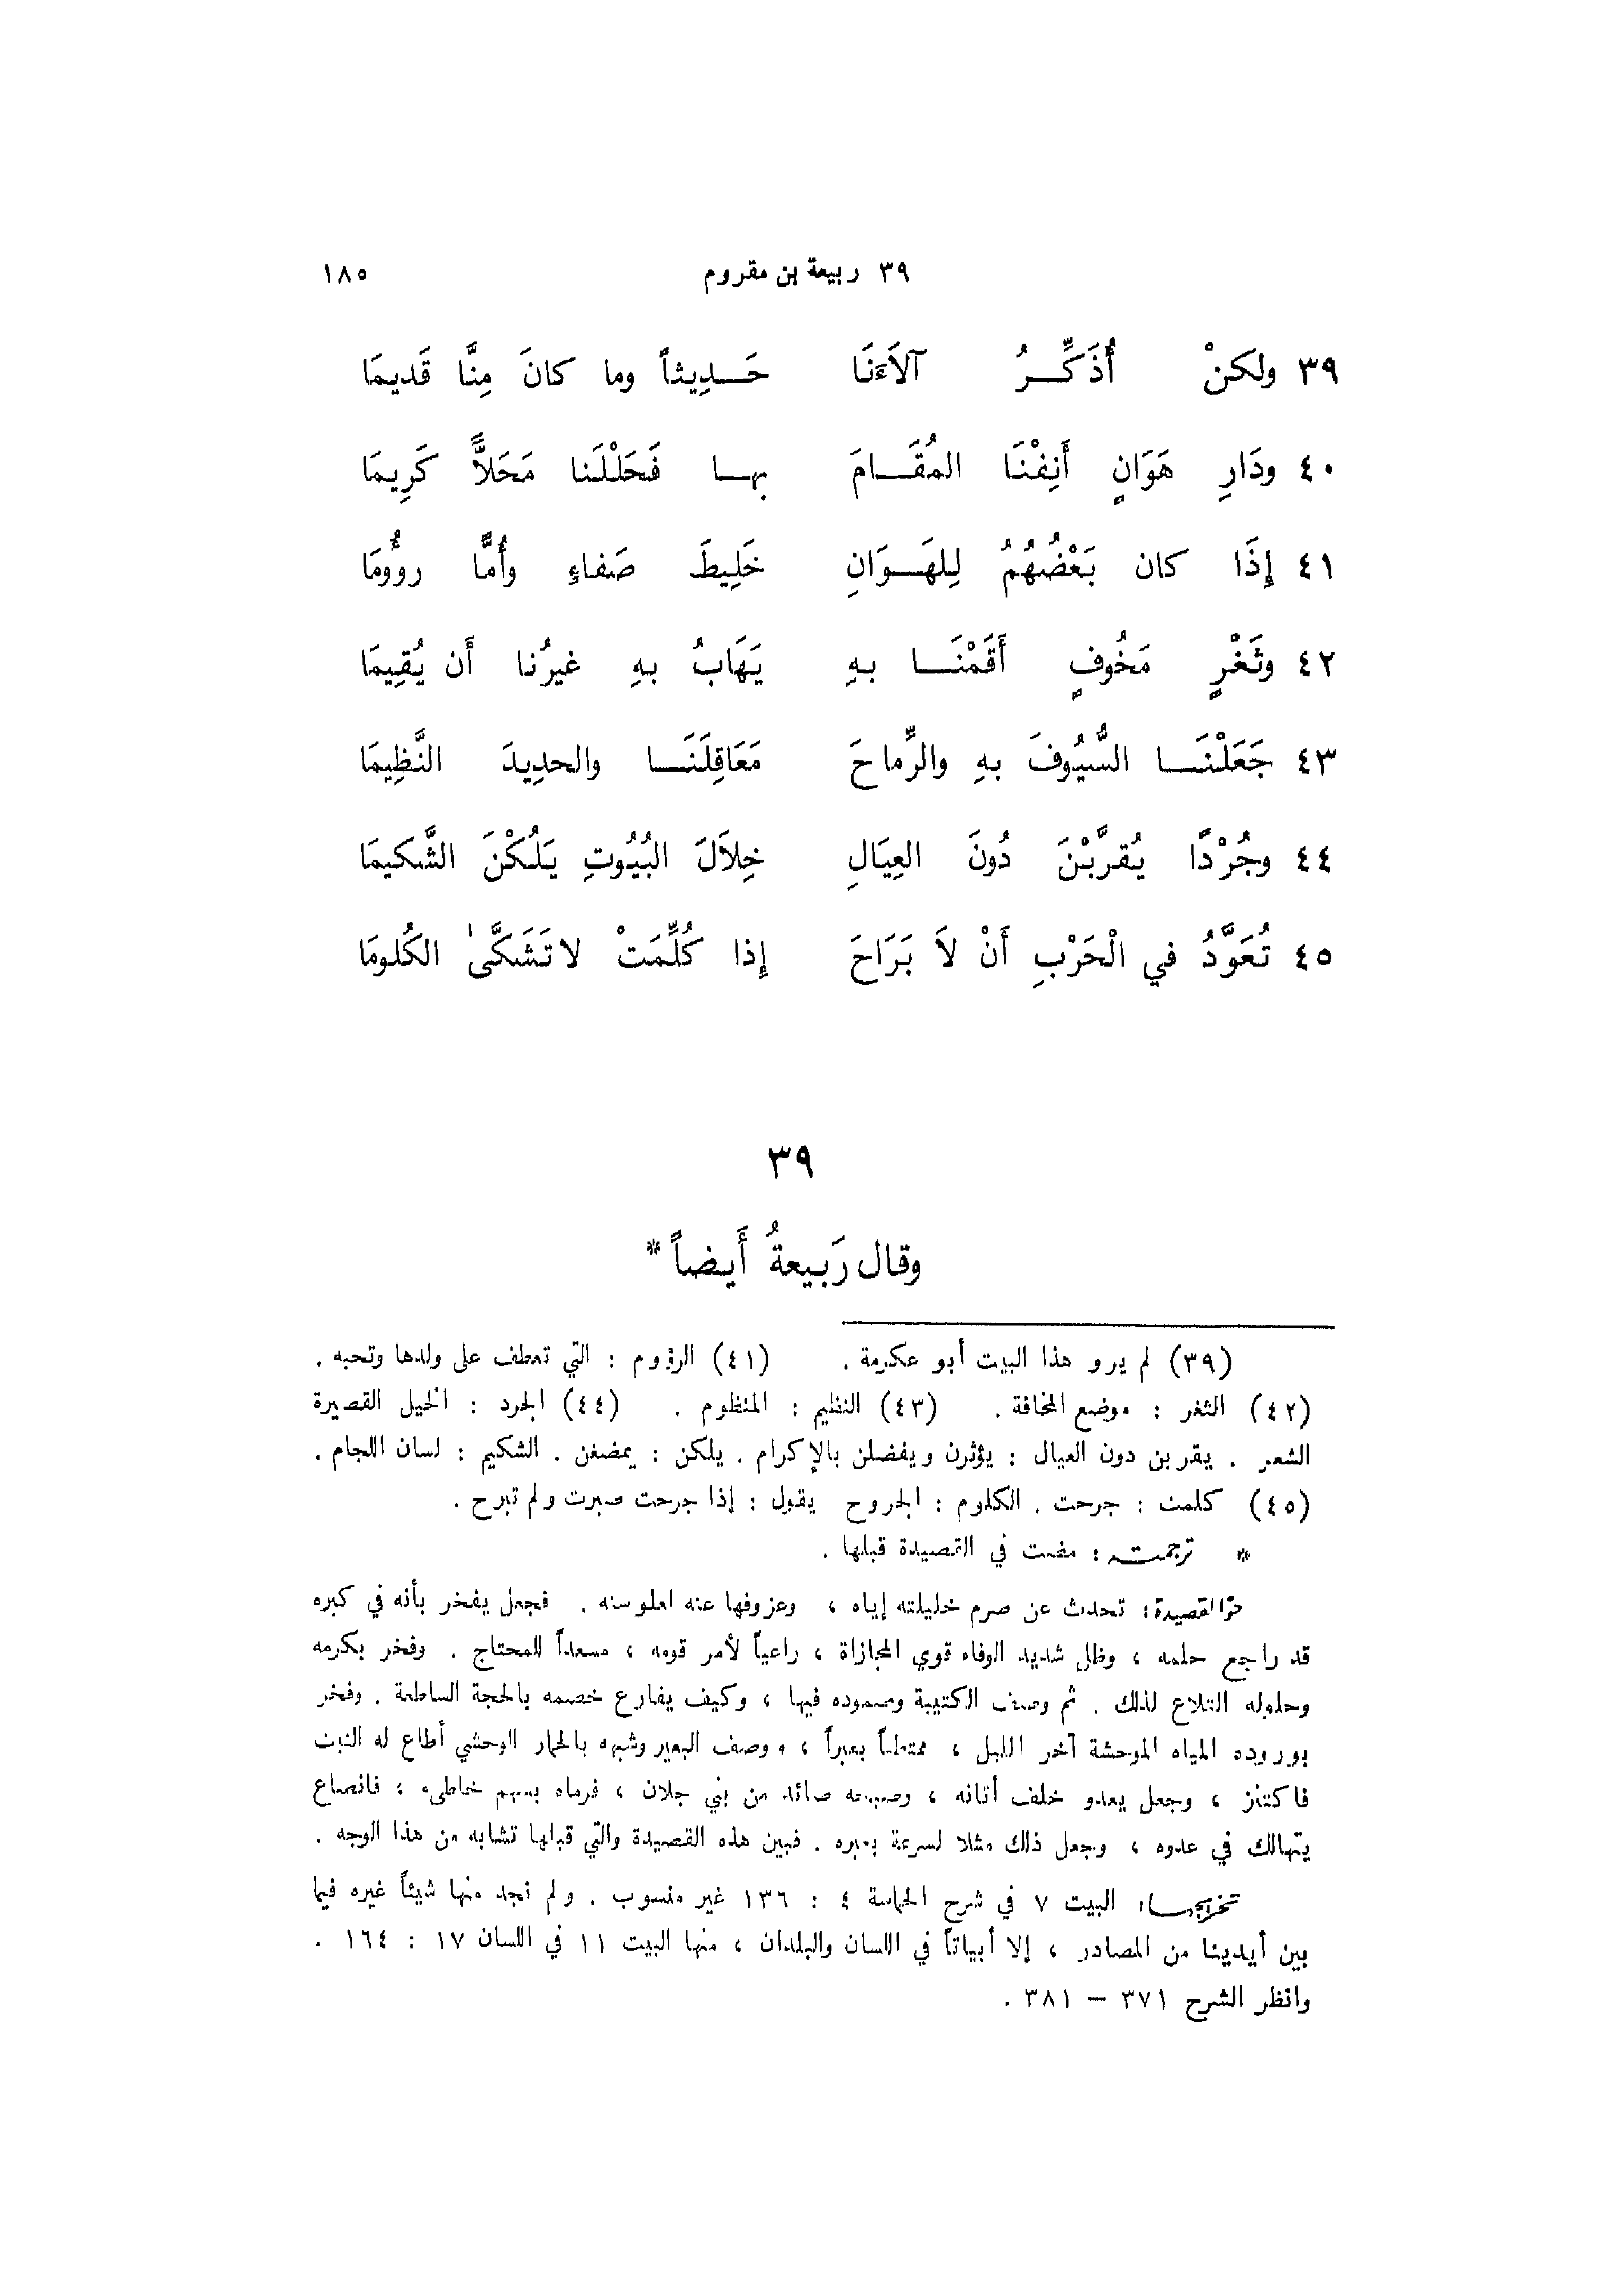 ٣٩ ربيعة بن مقروم ١٨٥
٣٩ ولكنْ أُذَكِّرُ آلاَءَنَا حَدِيثاً وما كانَ مِنَّا قَديمَا
٤٠ ودَارِ هَوَانٍ أَنِفْنَا المُقَامَ بها فَحَلَلْنَا مَحَلاًّ كَرِيمَا
٤١ إِذَا كان بَعْضُهُمُ لِلهَوَانِ خَلِيطَ صَفاءٍ وأُمًّا رؤُومَا
٤٢ وثَغْرٍ مَخُوفٍ أَقَمْنَا بهِ يَهَابُ بهِ غيرُنا أَن يُقِيمَا
٤٣ جَعَلْنَا السُّيُوفَ بهِ والرِّماحَ مَعَاقِلَنَا والحدِيدَ النَّظِيمَا
٤٤ وجُرْدًا يُقرَّبْنَ دُونَ العِيَالِ خِلاَلَ البُيُوتِ يَلُكْنَ الشَّكيمَا
٤٥ تُعَوَّدُ في الْحَرْبِ أَنْ لاَ بَرَاحَ إِذا كُلِّمَتْ لا تَشَكَّىٰ الكُلومَا
٣٩
وقال رَبيعةُ أَيضاً*
(٣٩) لم يرو هذا البيت أبو عكرمة . (٤١) الرؤوم : التي تعطف على ولدها وتحبه .
(٤٢) الثغر : موضع المخافة . (٤٣) النظيم : المنظوم . (٤٤) الجرد : الخيل القصيرة
الشعر . يقربن دون العيال : يؤثرن ويفضلن بالإكرام . يلكن : يمضغن . الشكيم : لسان اللجام .
(٤٥) كلمت : جرحت . الكلوم : الجروح يقول : إذا جرحت صبرت ولم تبرح .
* ترجمته : مضت في القصيدة قبلها .
جو القصيدة : تحدث عن صرم خليلته إياه ، وعزوفها عنه لعلو سنه . فجعل يفخر بأنه في كبره
قد راجع حلمه ، وظل شديد الوفاء قوي المجازاة ، راعياً لأمر قومه ، مسعداً للمحتاج . وفخر بكرمه
وحلوله التلاع لذلك . ثم وصف الكتيبة وصموده فيها ، وكيف يقارع خصمه بالحجة الساطعة . وفخر
بوروده المياه الموحشة آخر الليل ، ممتطياً بعيراً ، ووصف البعير وشبهه بالحمار الوحشي أطاع له النبت
فاكتنز ، وجعل يعدو خلف أتانه ، وصبحه صائد من بني جلان ، فرماه بسهم خاطىء ؛ فانصاع
يتهالك في عدوه ، وجعل ذلك مثلا لسرعة بعيره . فبين هذه القصيدة والتي قبلها تشابه من هذا الوجه .
تخريجها : البيت ٧ في شرح الحماسة ٤ : ١٣٦ غير منسوب . ولم نجد منها شيئاً غيره فيما
بين أيدينا من المصادر ، إلا أبياتاً في اللسان والبلدان ، منها البيت ١١ في اللسان ١٧ : ١٦٤ .
وانظر الشرح ٣٧١ – ٣٨١ .